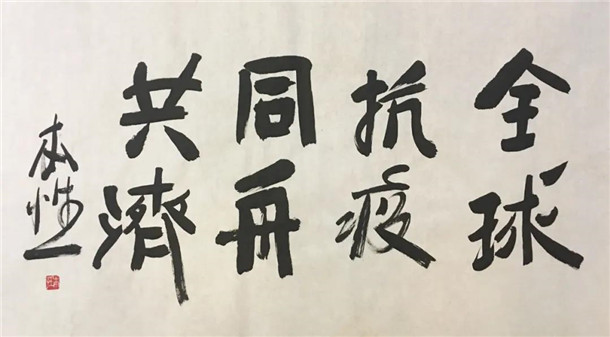 全球
抗疫
同舟
共濟
本性